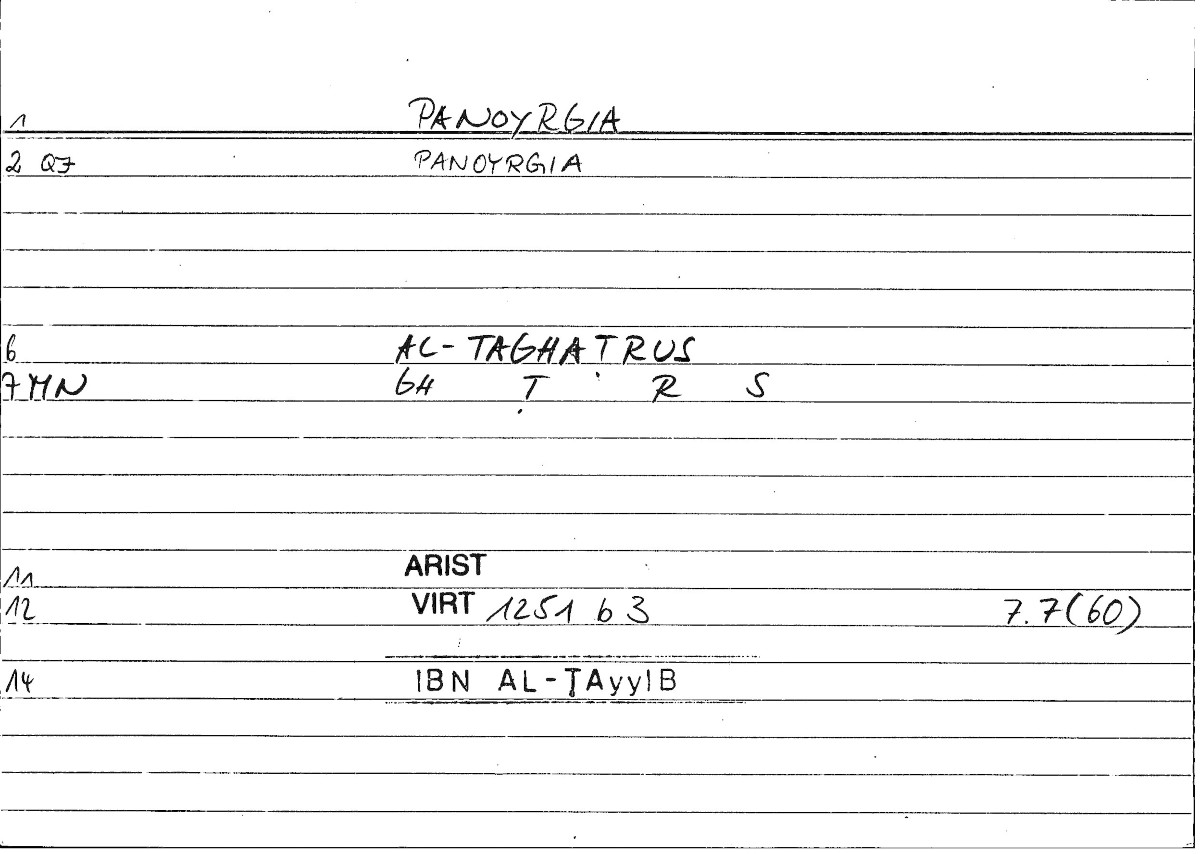 1 PANOYRGIA
2 Q7 PANOYRGIA
6 AL-TAGHAṬRUS
7 MN GH Ṭ R S
11 ARIST
12 VIRT 1251 b 3 7.7(60)
14 IBN AL-ṬAyyIB